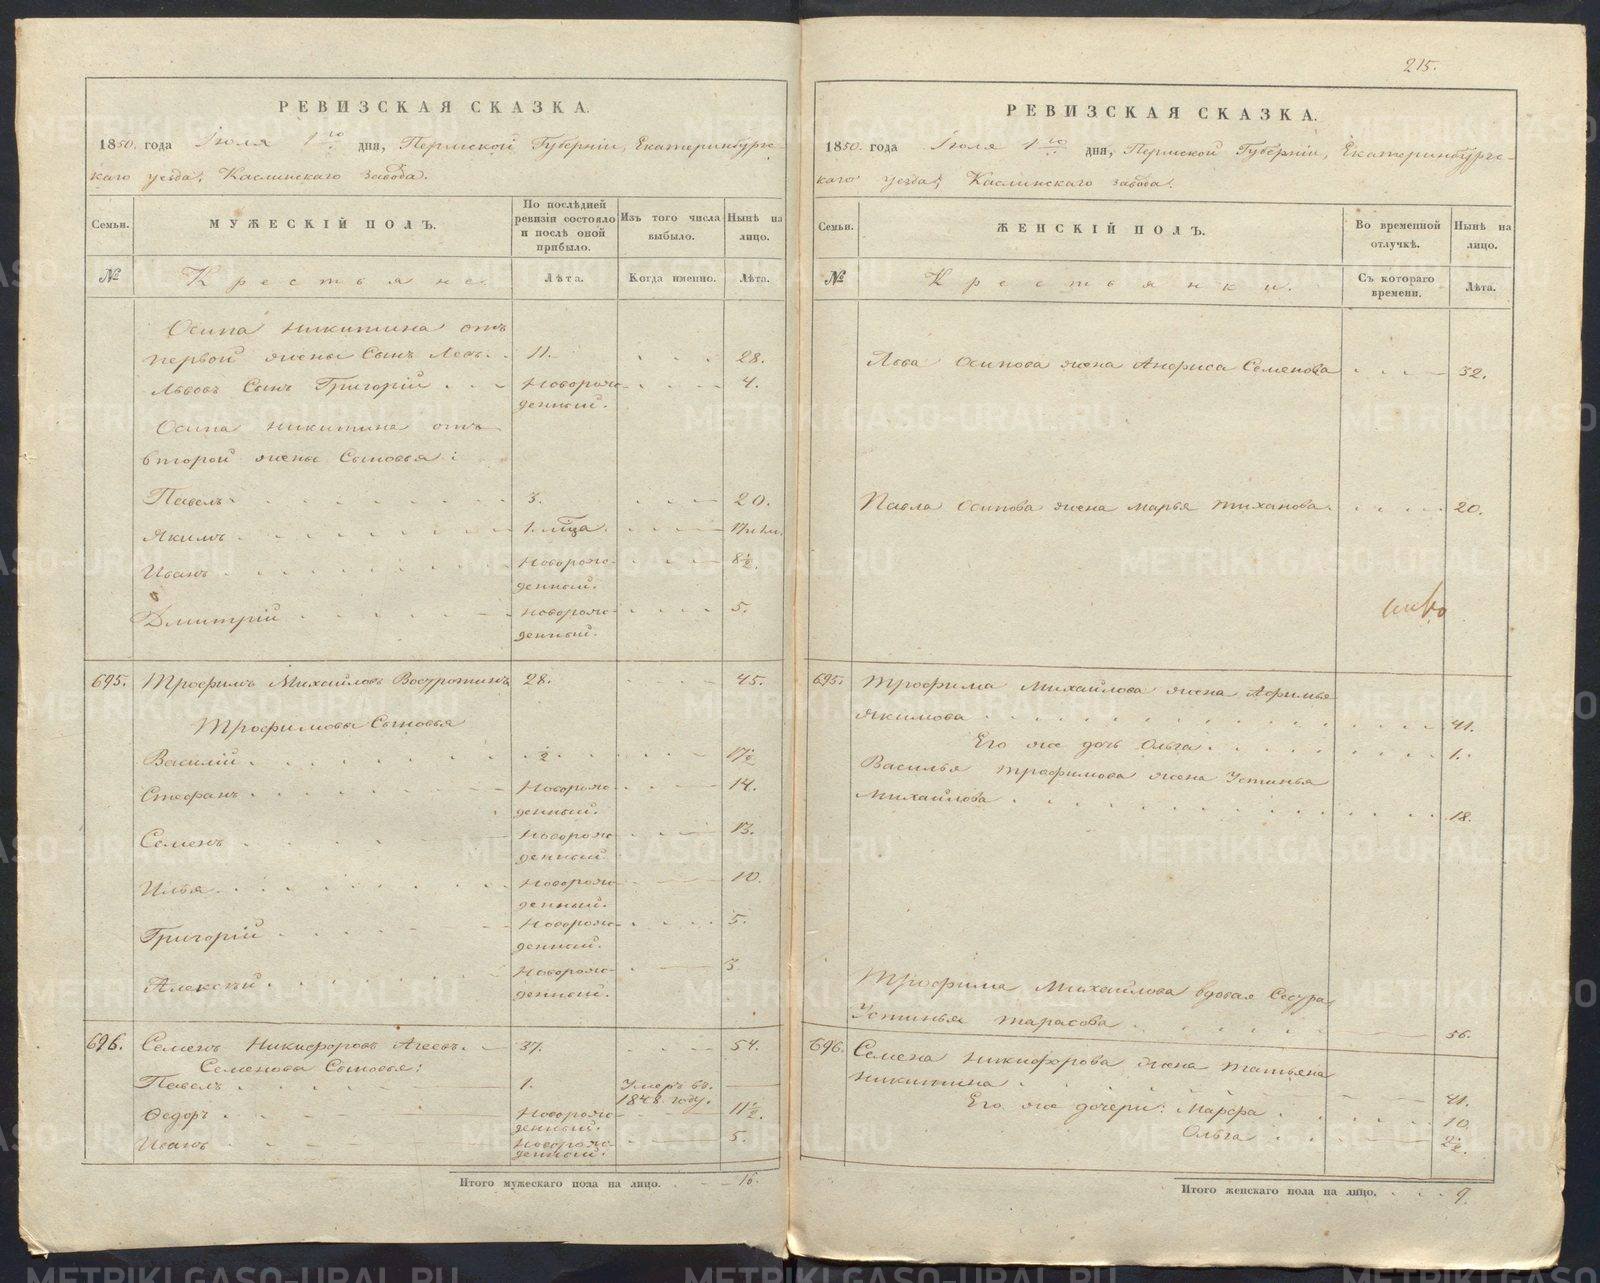 215.
РЕВИЗСКАЯ СКАЗКА.
1850. года Іюля 1го дня, Пермской Губерніи, Екатеринбургс-
каго уезда, Каслинскаго завода.
Семьи. МУЖЕСКІЙ ПОЛЪ. По послѣдней ревизіи состояло и послѣ оной прибыло. Изъ того числа выбыло. Нынѣ на лицо.
№ Крестьяне. Лѣта. Когда именно. Лѣта.
Осипа Никитина отъ
первой жены Сынъ Левъ. 11. 28.
Львовъ Сынъ Григорій Новорож- 4.
денный.
Осипа Никитина отъ
второй жены Сыновья:
Павелъ 3. 20.
Якимъ 1. мца.
Иванъ Новорож- 8½.
денный.
Дмитрій Новорож- 5.
денный.
695. Трофимъ Михайловъ Востротинъ 28. 45.
Трофимовы Сыновья
Василій ½ 17½
Стефанъ Новорож- 14.
денный.
Семенъ Новорож- 13.
денный
Илья Новорож- 10.
денный.
Григорій Новорож- 5.
денный.
Алексѣй Новорож- 3
денный.
696. Семенъ Никифоровъ Агеевъ. 37. 54.
Семеновы Сыновья:
Павелъ 1. Умеръ въ
1848 году.
Ѳедоръ Новорож- 11½.
денный.
Иванъ Новорож- 5.
денный.
Итого мужескаго пола на лицо. 16.
РЕВИЗСКАЯ СКАЗКА.
1850. года Іюля 1го дня, Пермской Губерніи, Екатеринбургс-
каго уезда, Каслинскаго завода.
Семьи. ЖЕНСКІЙ ПОЛЪ. Во временной отлучкѣ. Нынѣ на лицо.
№ Крестьянки. Съ котораго времени. Лѣта.
Льва Осипова жена Анфиса Семенова 32.
Павла Осипова жена Марья Тиханова 20.
695. Трофима Михайлова жена Афимья
Якимова 41.
Его же дочь Ольга 1.
Василья Трофимова жена Устинья
Михайлова 18.
Трофима Михайлова вдовая Сестра
Устинья Тарасова 56.
696. Семена Никифорова жена Татьяна
Никитина 41.
Его же дочери: Марфа 10
Ольга 2½.
Итого женскаго пола на лицо. 9.
METRIKI.GASO-URAL.RU